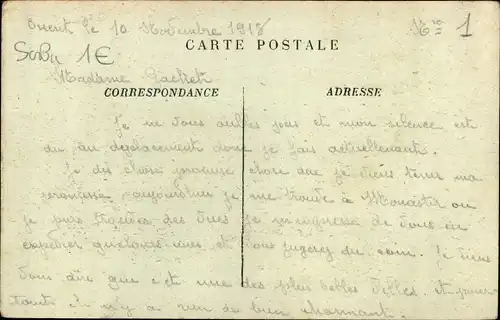 Orient le 10 Novembre 1918 No 1
CARTE POSTALE
Serbie 1€
Madame
CORRESPONDANCE ADRESSE
Je ne vous oublie pas et mon silence est
du au deplacement dont je fais actuellement.
Je dis chose promise chose due je viens tenir ma
promesse aujourd'hui je me trouve à Monastir ou
je puis trouver des vues je m'empresse de vous en
expedier quelques unes et vous jugerez du coin. Je
vous dire que c'est une des plus belles villes et pour
tout il n'y a rien de bien charmant.